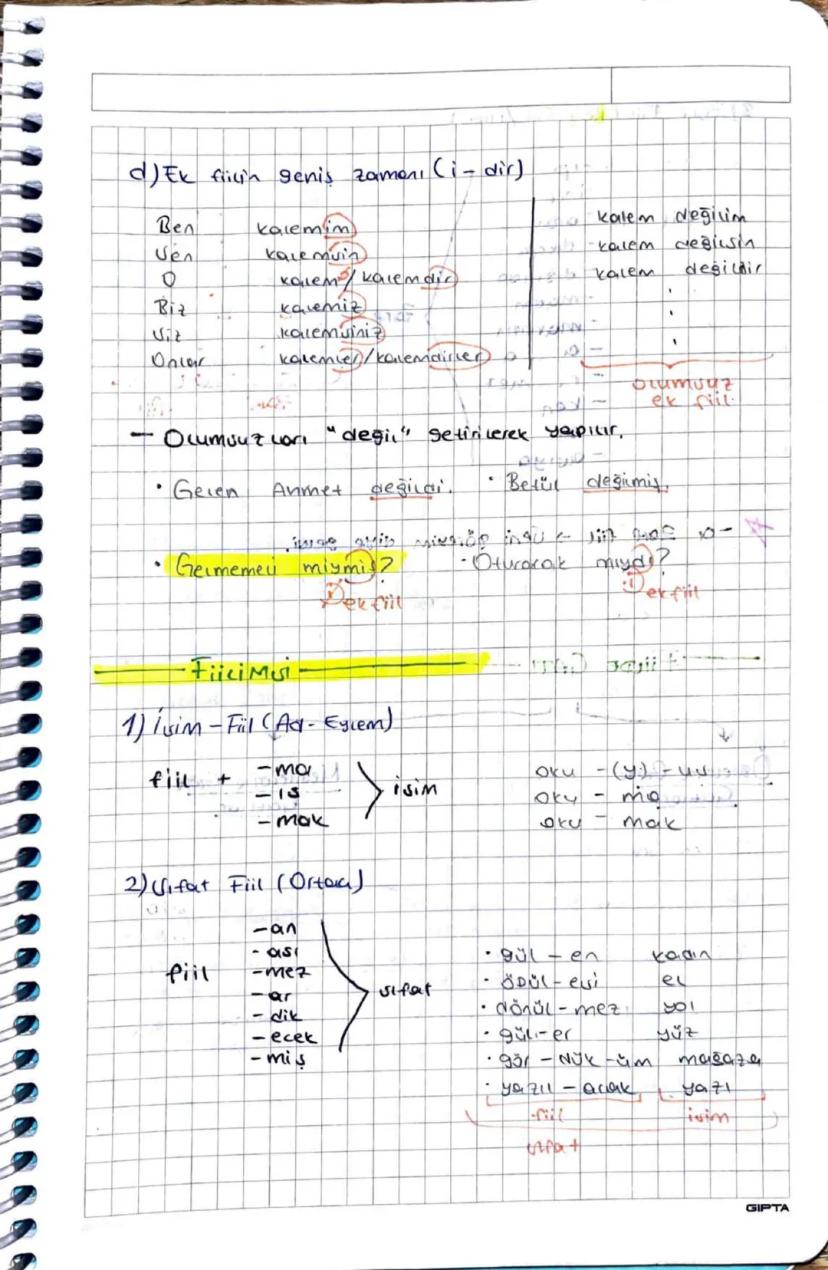 d) Ek fiilin geniş zamanı (i-dir)
Ben kalemim
Sen kalemsin
O kalem / kalemdir
Biz kalemiz
Siz kalemsiniz
Onlar kalemler/kalemdirler
kalem değilim
kalem değilsin
kalem değildir
olumsuz
ek fiil
— Olumsuzları "değil" getirilerek yapılır.
• Gelen Ahmet değildi. • Betül değilmiş.
• Gelmemeli miymiş? • Oturacak mıydı?
ek fiil ek fiil
Fiilimsi
1) İsim-Fiil (Ad-Eylem)
fiil +
-ma
-ış
-mak
isim
oku -(y)-uş
oku - ma
oku - mak
2) Sıfat Fiil (Ortaç)
fiil
-an
-ası
-mez
-ar
-dik
-ecek
-miş
sıfat
• gül - en kadın
• öpül - esi el
• dönül - mez yol
• gül - er yüz
• gör - dük - üm mağaza
• yazıl - acak yazı
fiil isim
sıfat
GIPTA